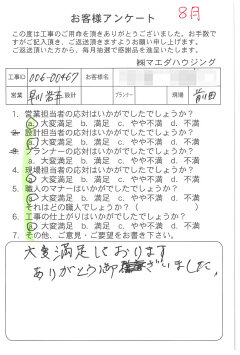 お客様アンケート
8月
この度は工事のご用命を頂きありがとうございました。お手数で
すがご記入頂き、ご返送頂きますようお願い申し上げます。
ご返送頂いた方から、毎月抽選で感謝品を進呈いたします。
㈱マエダハウジング
工事ID 006-00467 お客様名
営業 設計 プランナー 現場 前田
1. 営業担当者の応対はいかがでしたでしょうか?
a. 大変満足 b. 満足 c. やや不満 d. 不満
2. 設計担当者の応対はいかがでしたでしょうか?
a. 大変満足 b. 満足 c. やや不満 d. 不満
3. プランナーの応対はいかがでしたでしょうか?
a. 大変満足 b. 満足 c. やや不満 d. 不満
4. 現場担当者の応対はいかがでしたでしょうか?
a. 大変満足 b. 満足 c. やや不満 d. 不満
5. 職人のマナーはいかがでしたでしょうか?
a. 大変満足 b. 満足 c. やや不満 d. 不満
それはどの職人でしょうか?( )
6. 工事の仕上がりはいかがでしたでしょうか?
a. 大変満足 b. 満足 c. やや不満 d. 不満
7. その他、ご意見・ご要望をお書き下さい。
大変満足しております
ありがとう御ざいました。